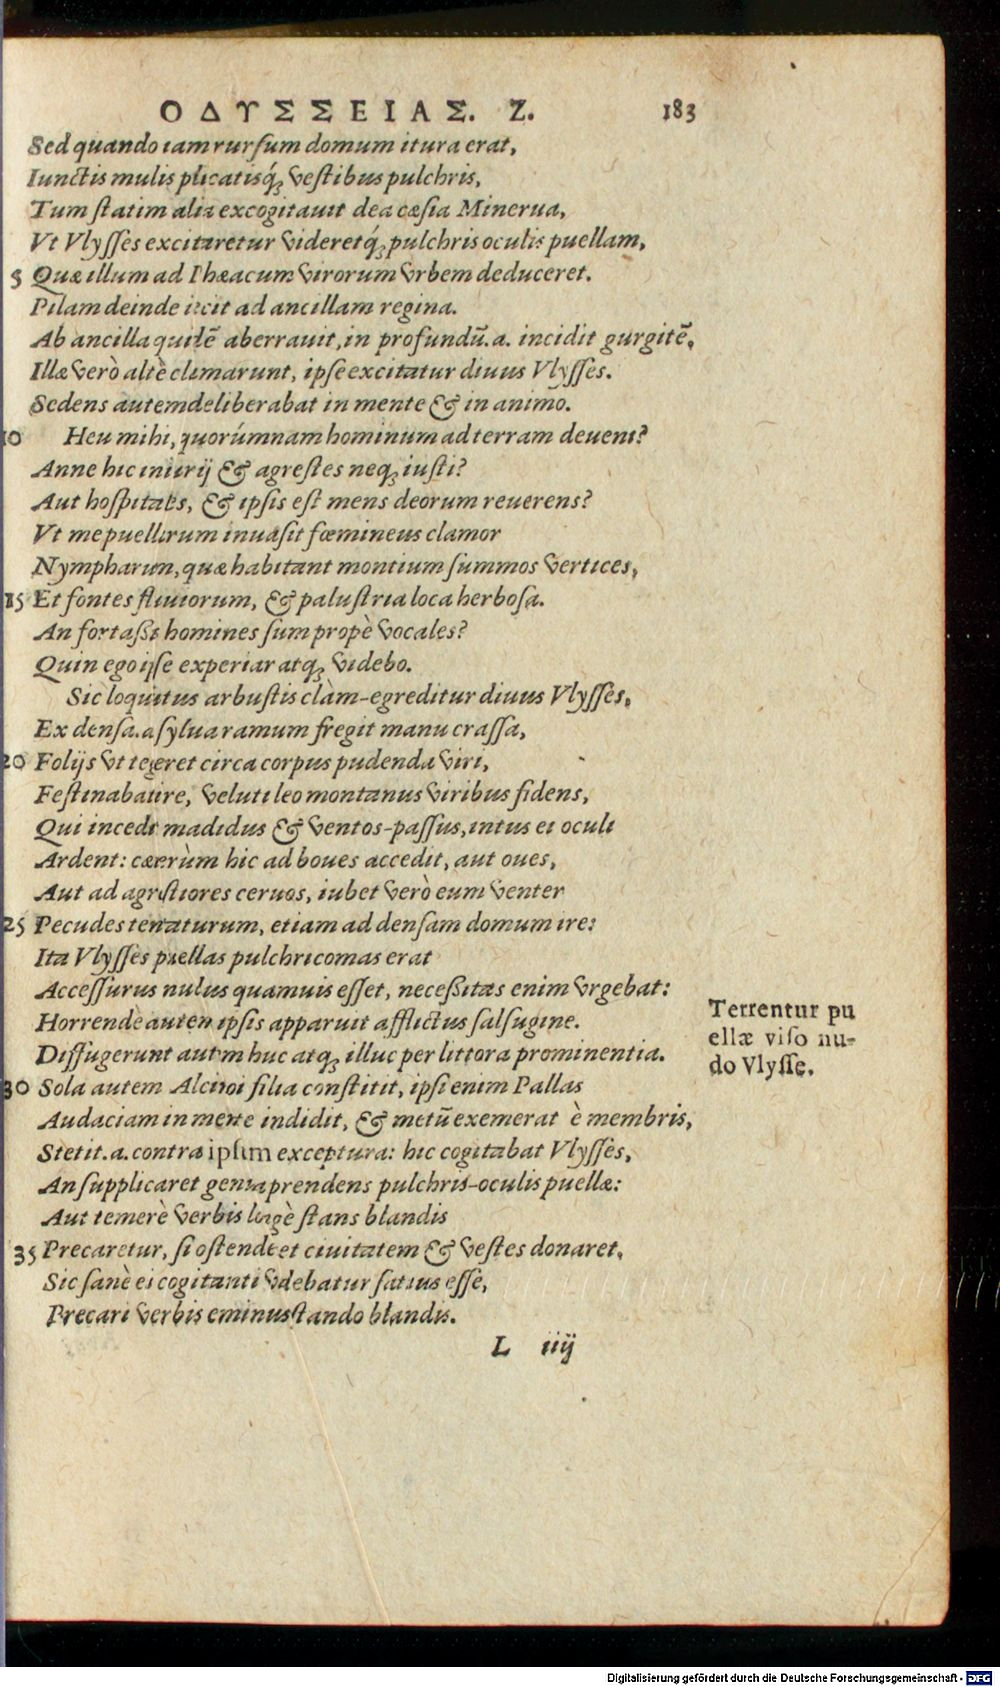 ΟΔΥΣΣΕΙΑΣ. Ζ. 183
Sed quando iam rursum domum itura erat,
Iunctis mulis plicatisq́; vestibus pulchris,
Tum statim alia excogitauit dea cæsia Minerua,
Vt Vlysses excitaretur videretq́; pulchris oculis puellam,
5 Quæ illum ad Phæacum virorum vrbem deduceret.
Pilam deinde iecit ad ancillam regina.
Ab ancilla quidẽ aberrauit, in profundũ.a. incidit gurgitẽ,
Illæ verò altè clamarunt, ipse excitatur diuus Vlysses.
Sedens autem deliberabat in mente & in animo.
10 Heu mihi, quorúmnam hominum ad terram deueni?
Anne hic iniurij & agrestes neq; iusti?
Aut hospitales, & ipsis est mens deorum reuerens?
Vt me puellarum inuasit fœmineus clamor
Nympharum, quæ habitant montium summos vertices,
15 Et fontes fluuiorum, & palustria loca herbosa.
An fortassis homines sum propè vocales?
Quin ego ipse experiar atq; videbo.
Sic loquutus arbustis clàm-egreditur diuus Vlysses,
Ex densa.a sylua ramum fregit manu crassa,
20 Folijs vt tegeret circa corpus pudenda viri,
Festinabat ire, veluti leo montanus viribus fidens,
Qui incedit madidus & ventos-passus, intus ei oculi
Ardent: cæterùm hic ad boues accedit, aut oues,
Aut ad agrestiores ceruos, iubet verò eum venter
25 Pecudes tentaturum, etiam ad densam domum ire:
Ita Vlysses puellas pulchricomas erat
Accessurus nudus quamuis esset, necessitas enim vrgebat:
Horrende autem ipsis apparuit afflictus salsugine.
Diffugerunt autem huc atq; illuc per littora prominentia.
30 Sola autem Alcinoi filia constitit, ipsi enim Pallas
Audaciam in mente indidit, & metũ exemerat è membris,
Stetit.a. contra ipsum exceptura: hic cogitabat Vlysses,
An supplicaret genua prendens pulchris-oculis puellæ:
Aut temerè verbis longè stans blandis
35 Precaretur, si ostenderet ciuitatem & vestes donaret,
Sic sanè ei cogitanti videbatur satius esse,
Precari verbis eminus stando blandis.
Terrentur pu
ellæ viso nu-
do Vlysse.
L iiij
Digitalisierung gefördert durch die Deutsche Forschungsgemeinschaft - DFG